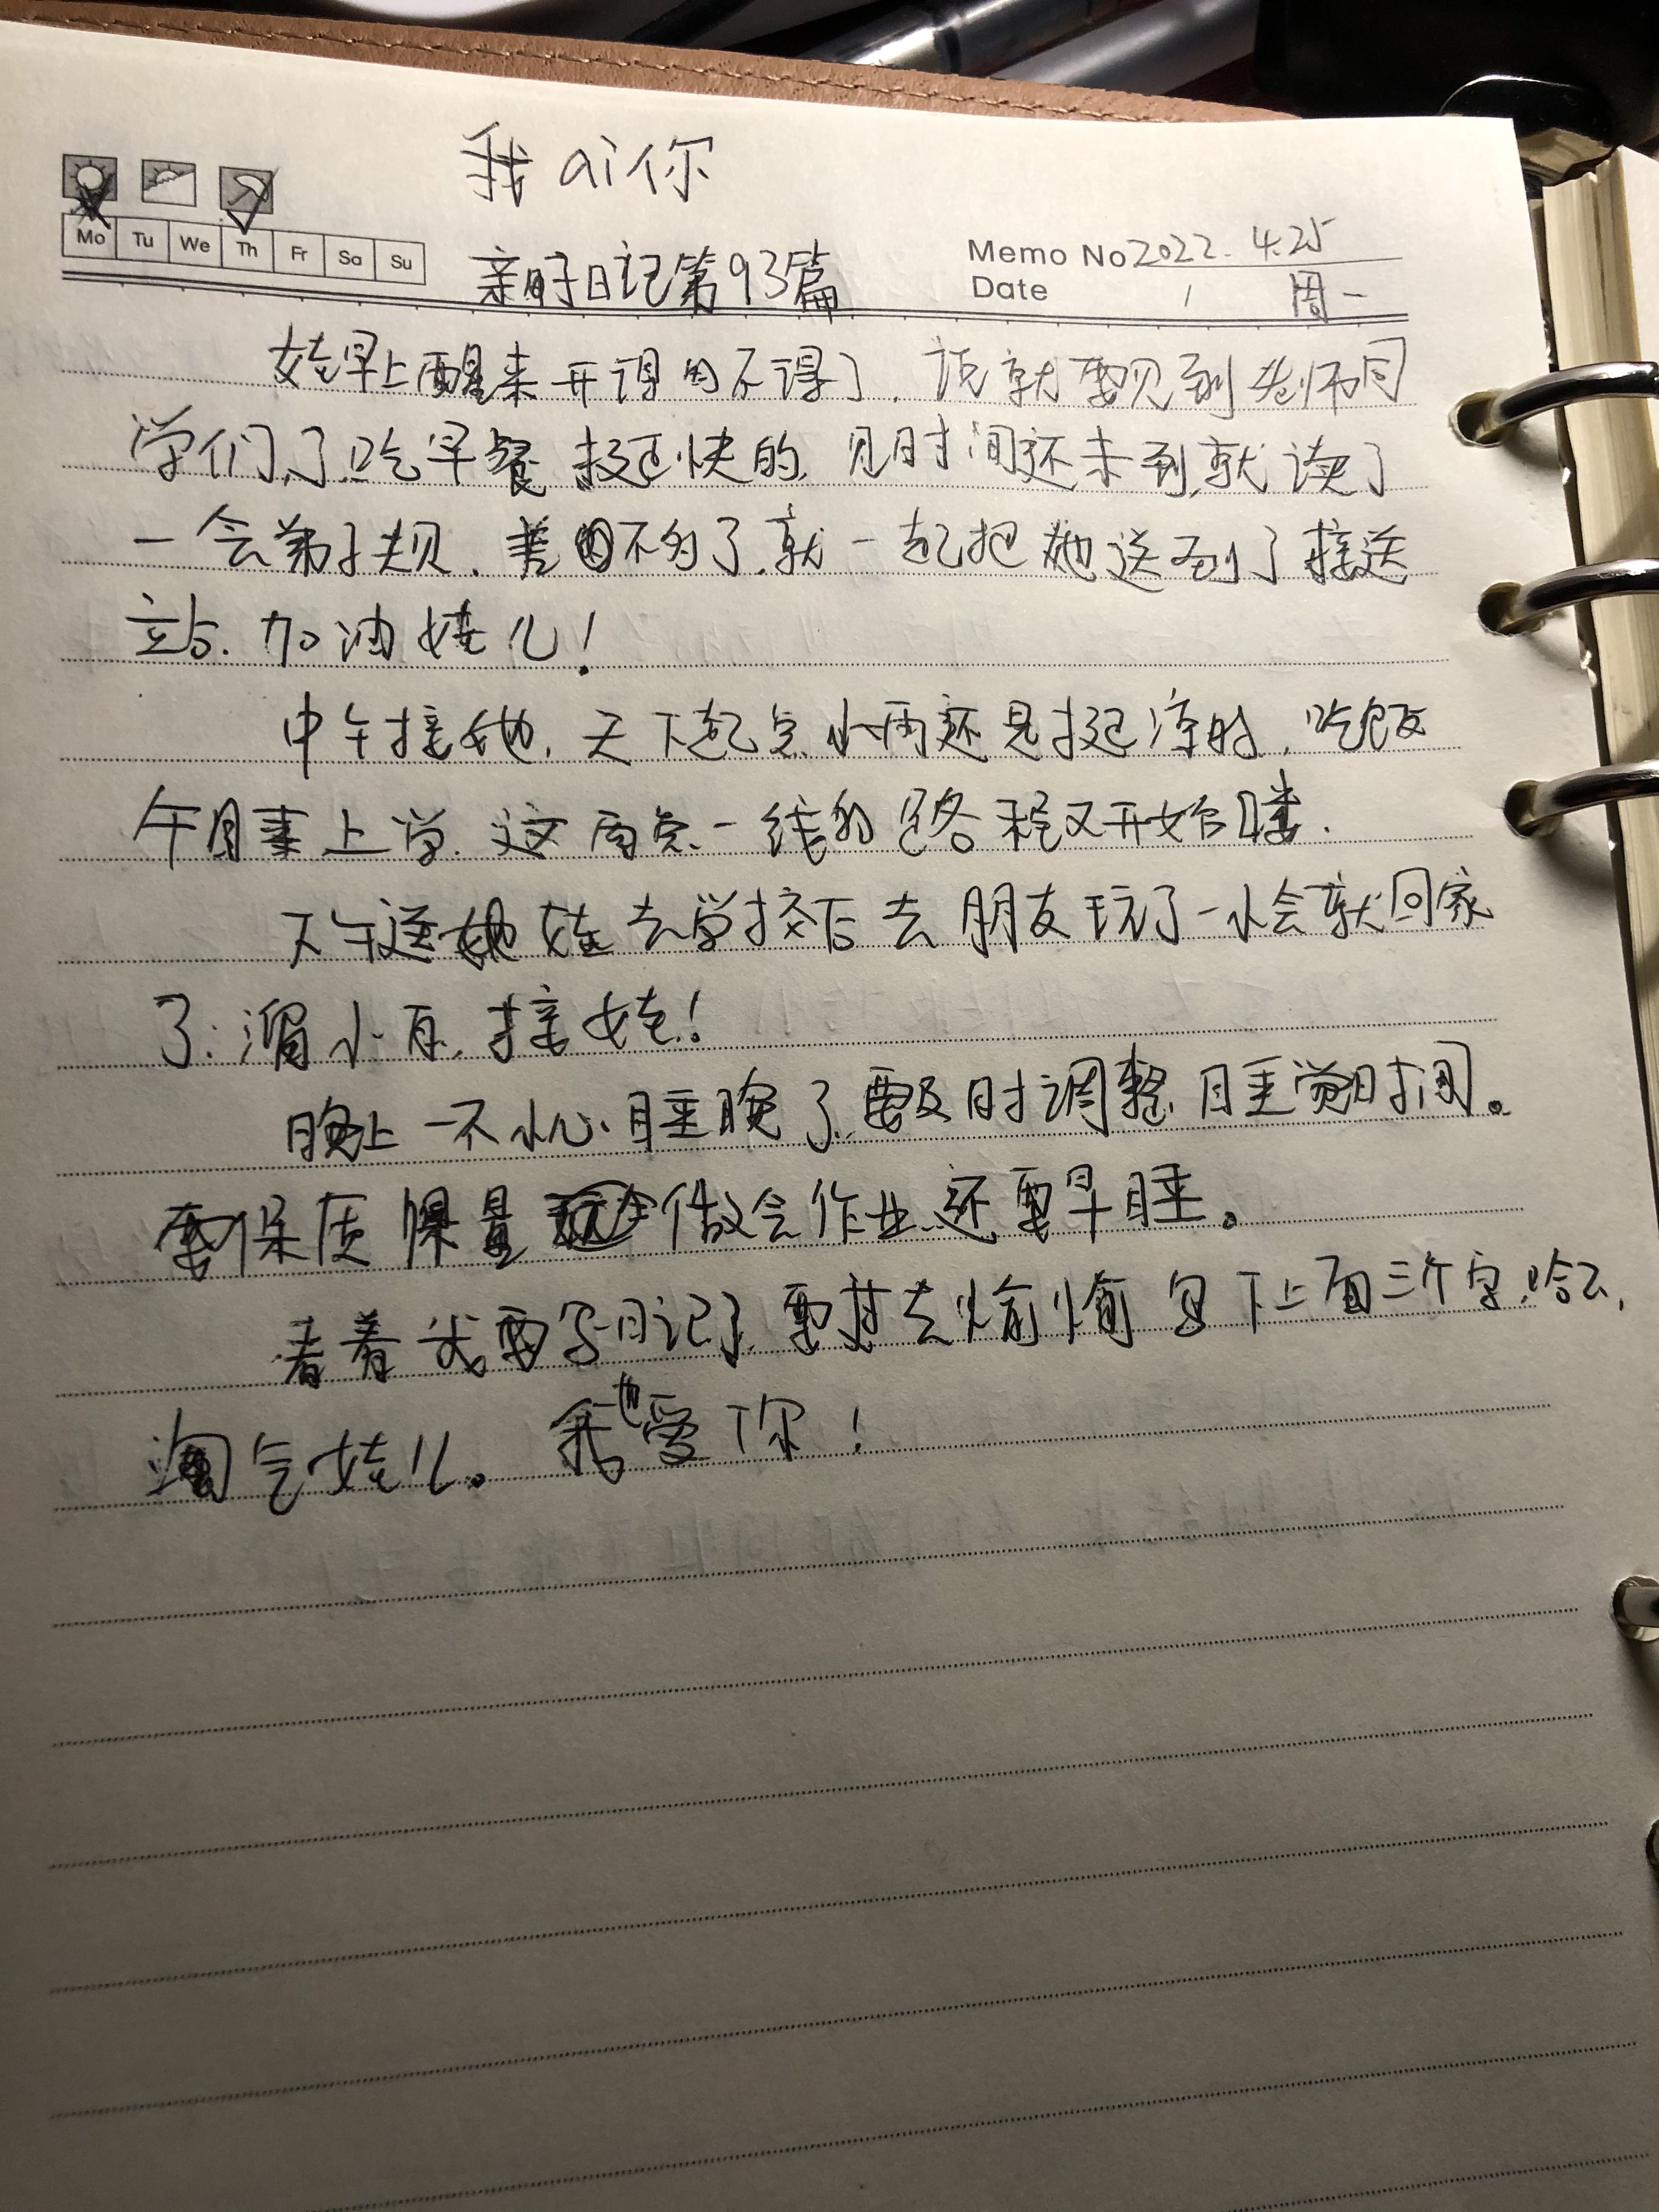 我ai你
Mo Tu We Th Fr Sa Su
Memo No 2022.4.25
亲子日记第93篇
Date / 周一
娃早上醒来开调的不得了,说就要见到老师同
学们了,吃早餐挺快的,见时间还未到,就读了
一会弟子规,差不多了,就一起把她送到了接送
站.加油娃儿!
中午接她,天下起点小雨还是挺凉的,吃饭
午睡上学.这两点一线的路程又开始喽.
下午送娃去学校后去朋友玩了一小会就回家
了.溜小百,接娃!
晚上一不小心睡晚了,要及时调整睡觉时间。
要保质保量做会作业还要早睡。
看着我要写日记了,要求去愉愉写下上面三个字,哈么,
淘气娃儿。我也爱你!